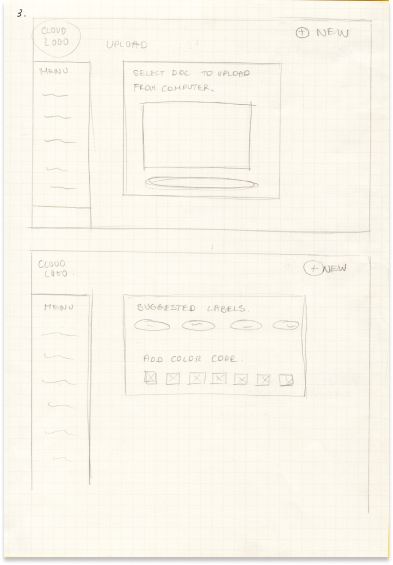 3.
CLOUD
LOGO
+ NEW
UPLOAD
MENU
SELECT DOC TO UPLOAD
FROM COMPUTER.
CLOUD
LOGO
+ NEW
MENU
SUGGESTED LABELS
ADD COLOR CODE